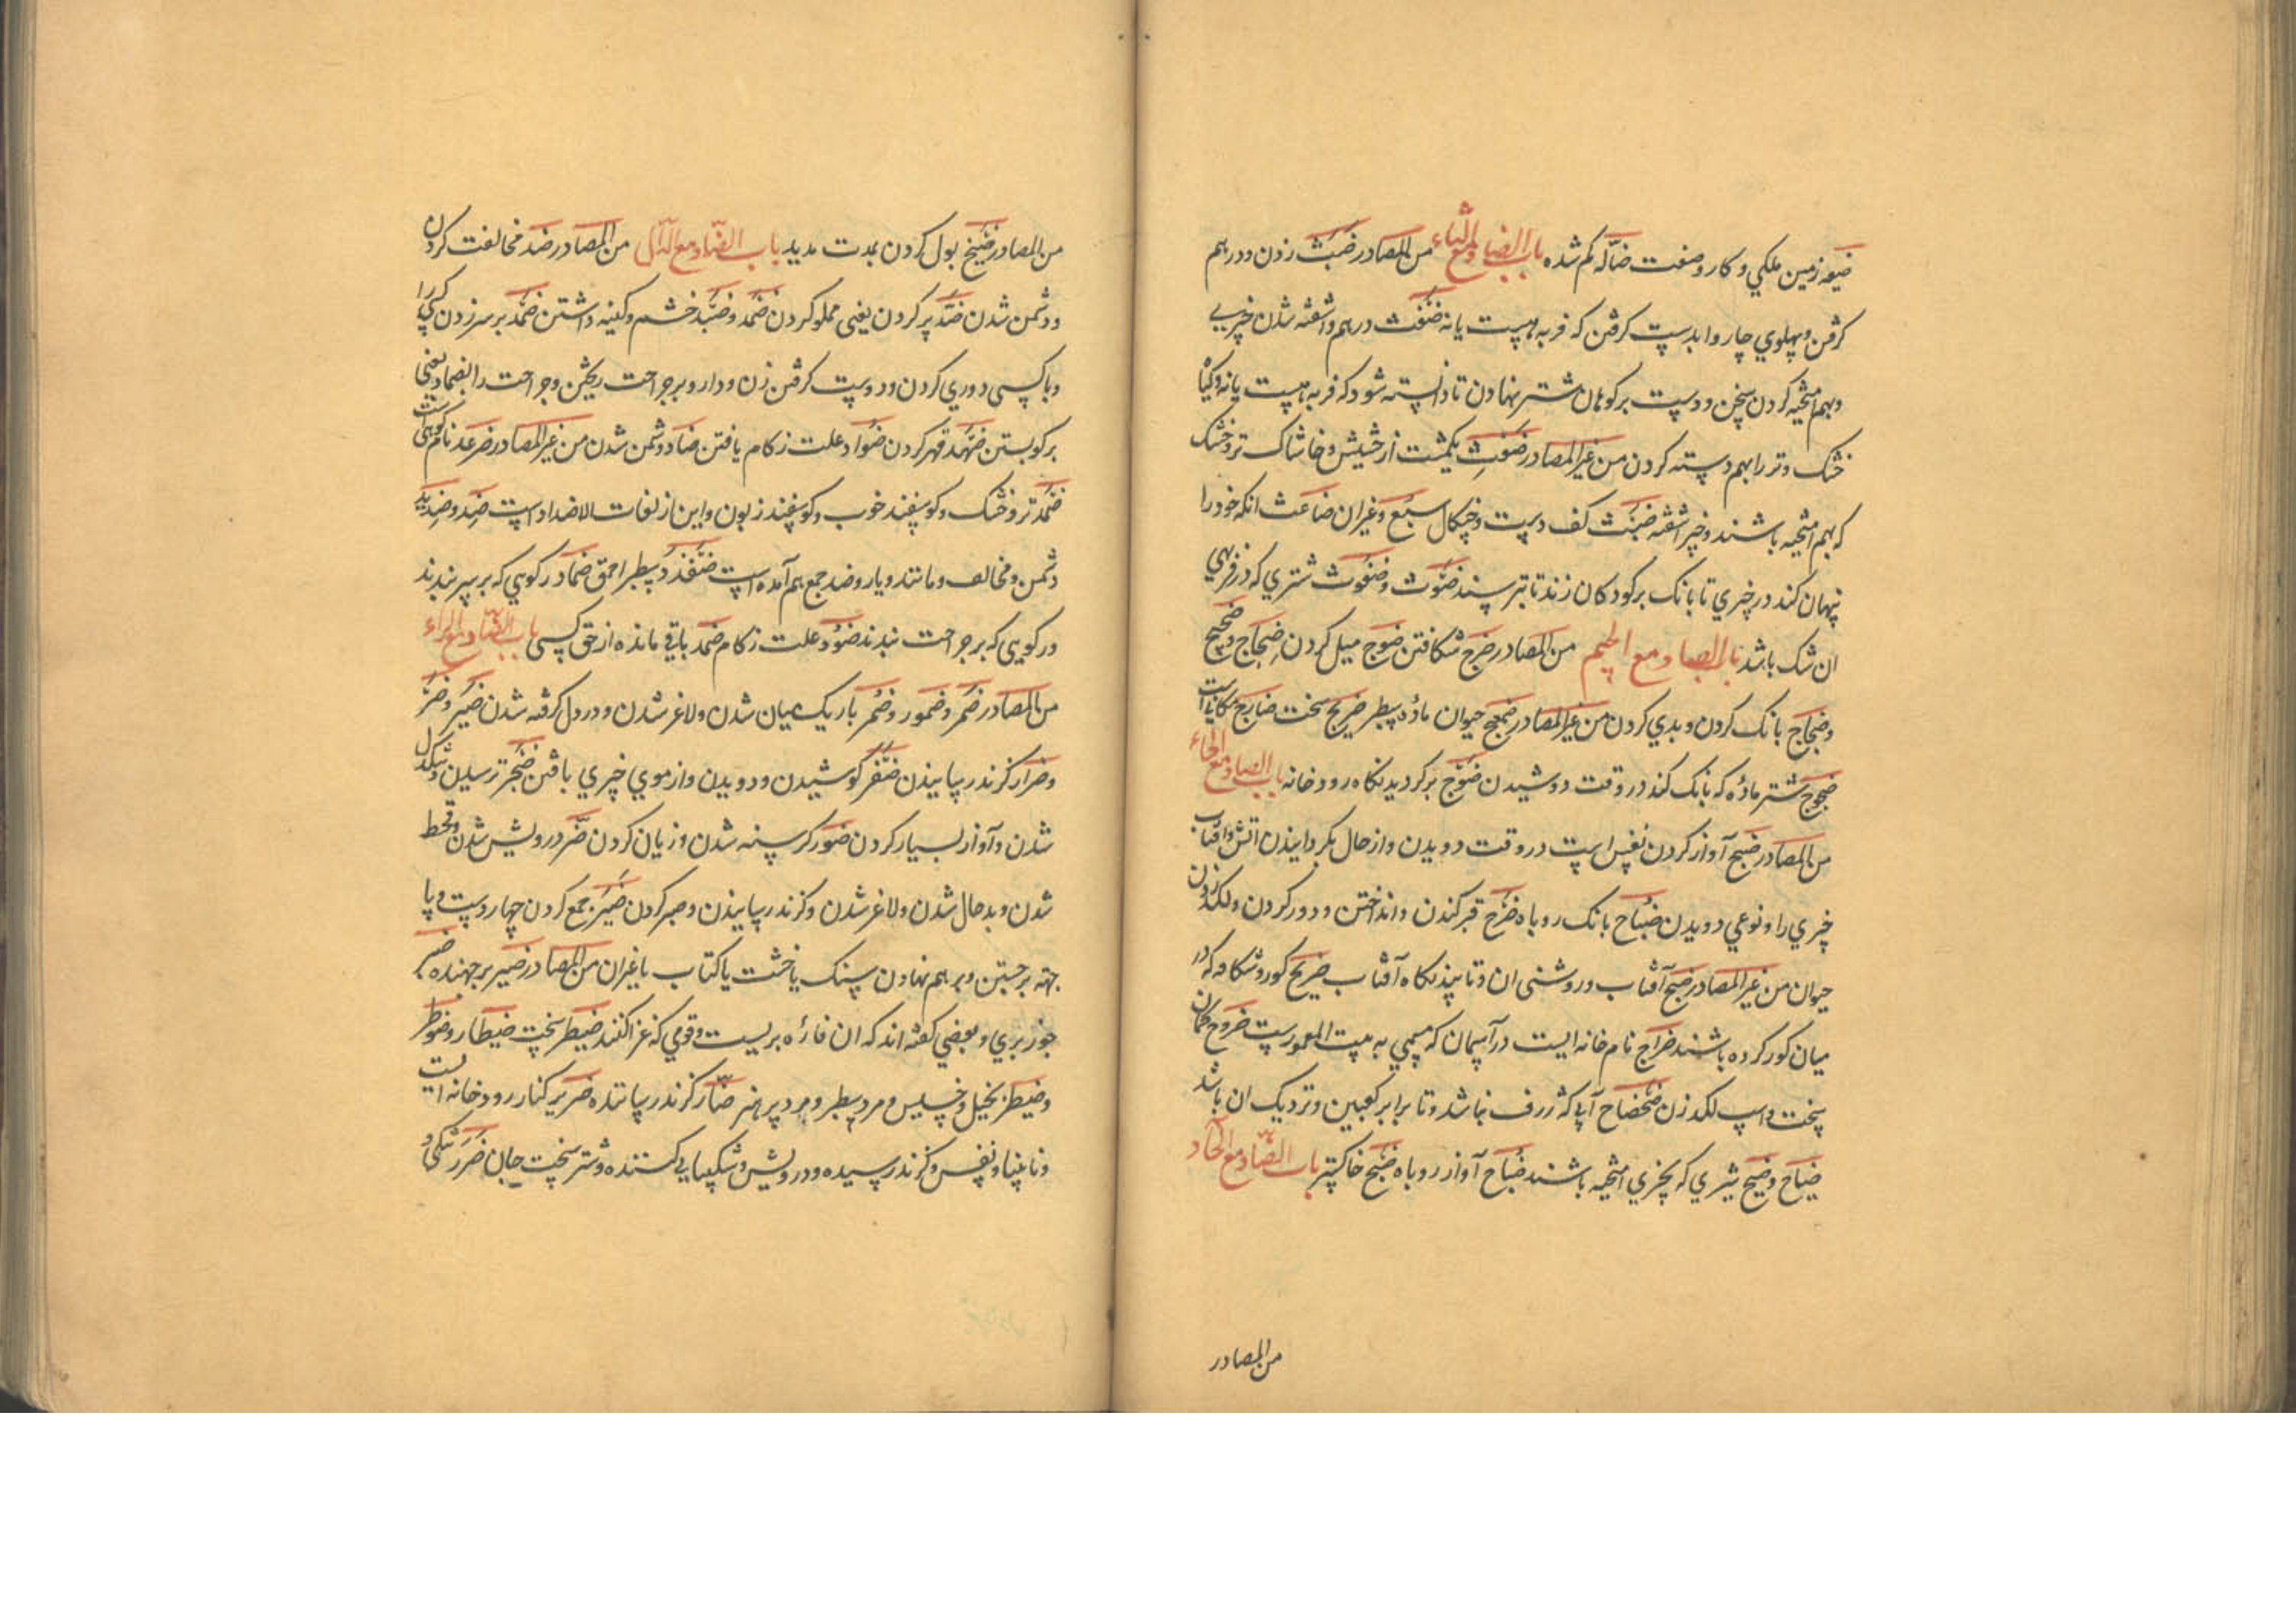 ضیعه زمین ملکي و کار و صفت ضالّه کم شده باب الضاد مع الثاء من المصادر ضَبْث زدن و در هم
کرفتن و پهلوي چاروا بدست کرفتن که فربه هست یا نه ضَغْث درهم و اشفته شدن چیزي
و بهم امیخته کردن سخن و دست بر کوهان شتر نهادن تا دانسته شود که فربه هست یا نه و کیاه
خشک و تر را بهم دسته کردن من غیر المصادر ضِغْث یکمشت از حشیش و خاشاک تر و خشک
که بهم امیخته باشند و خبر اشفته ضَبْث کف دست و چنکال سبع و غیر ان ضاغث انکه خود را
پنهان کند در چیزي تا بانک بر کودکان زند تا بترسند ضَبُوث و ضَغُوث شتري که در فربهي
ان شک باشد باب الضاد مع الجیم من المصادر ضرج شکافتن ضَوْج میل کردن ضِجاج و ضجیج
و ضَجاج بانک کردن و بدي کردن من غیر المصادر ضمعج حیوان مادهٔ سطبر ضریج سخت ضارج مکانیست
ضجوج شتر مادهٔ که بانک کند در وقت دوشیدن ضَوْج بر کردیدنکاه رودخانه باب الضاد مع الحاء
من المصادر ضَبْح آواز کردن نفس اسپ در وقت دویدن و از حال بکردانیدن اتش و افتاب
چیزي را و نوعي دویدن ضُباح بانک روباه ضَرْح قبر کندن و انداختن و دور کردن و لکد زدن
حیوان من غیر المصادر ضِحّ آفتاب و روشنی ان و تابیدنکاه آفتاب ضریح کور و شکافه که در
میان کور کرده باشند ضُراح نام خانه ایست در آسمان که مسمي به بیت المعمورست ضروح کمان
سخت و اسپ لکد زن ضَحْضاح آبي که ژرف نباشد و تا برابر کعبین و نزدیک ان باشد
ضَیاح و ضَیْح شیري که بچیزي امیخته باشند ضُباح آواز روباه ضِبْح خاکستر باب الضّاد مع الخاء
من المصادر
من المصادر ضَیخ بول کردن بمدت مدید باب الضّاد مع الدّال من المصادر ضد مخالفت کردن
و دشمن شدن ضَدّ پر کردن یعنی مملو کردن ضَمَد و ضَبَد خشم و کینه داشتن ضَمْد بر سر زدن کسي را
و با کسی دوري کردن و دو دوست کرفتن زن و دارو بر جراحت ریختن و جراحت را بضماد یعنی
برکو بستن ضَهْد قهر کردن ضُؤاد علت زکام یافتن ضاد دشمن شدن من غیر المصادر ضرغد نام کوهی است
ضَمْد تر و خشک و کوسفند خوب و کوسفند زبون و این از لغات الاضداد است ضِد و ضدید
دشمن و مخالف و مانند و یار و ضد جمع هم آمده است ضَفَنْدَد سطبر احمق ضماد رکویي که بر سر بندند
و رکویی که بر جراحت بندند ضُؤْد علت زکام ضَمَد باقي مانده از حق کسی باب الضّاد مع الراء
من المصادر ضُمْر و ضمور و ضُمُر باریک میان شدن و لاغر شدن و در دل کرفته شدن ضَیْر و ضَرّ
و ضرار کزند رسانیدن ضَفْر کوشیدن و دویدن و از موي چیزي بافتن ضَجَر ترسیدن و تنکدل
شدن و آواز بسیار کردن ضَوْر کرسنه شدن و زیان کردن ضُر درویش شدن و قحط
شدن و بد حال شدن و لاغر شدن و کزند رسانیدن و صبر کردن ضَبْر جمع کردن چهار دست و پا
جهة برجستن و بر هم نهادن سنک یا خشت یا کتاب یا غیر ان من المصادر ضَبر برجهنده ضبر
جوز بري و بعضي کفته اند که ان فارهٔ بریست و قومي که غزا کنند ضَیْطر سخت ضیطار و ضوطر
و ضیطر بخیل و خسیس و مرد سطبر و مرد پر هنر ضارّ کزند رساننده ضریر کنار رودخانه است
و نابینا و نفس و کزند رسیده و درویش و شکیبایي کننده و شتر سخت جان ضَرَر تنکي و